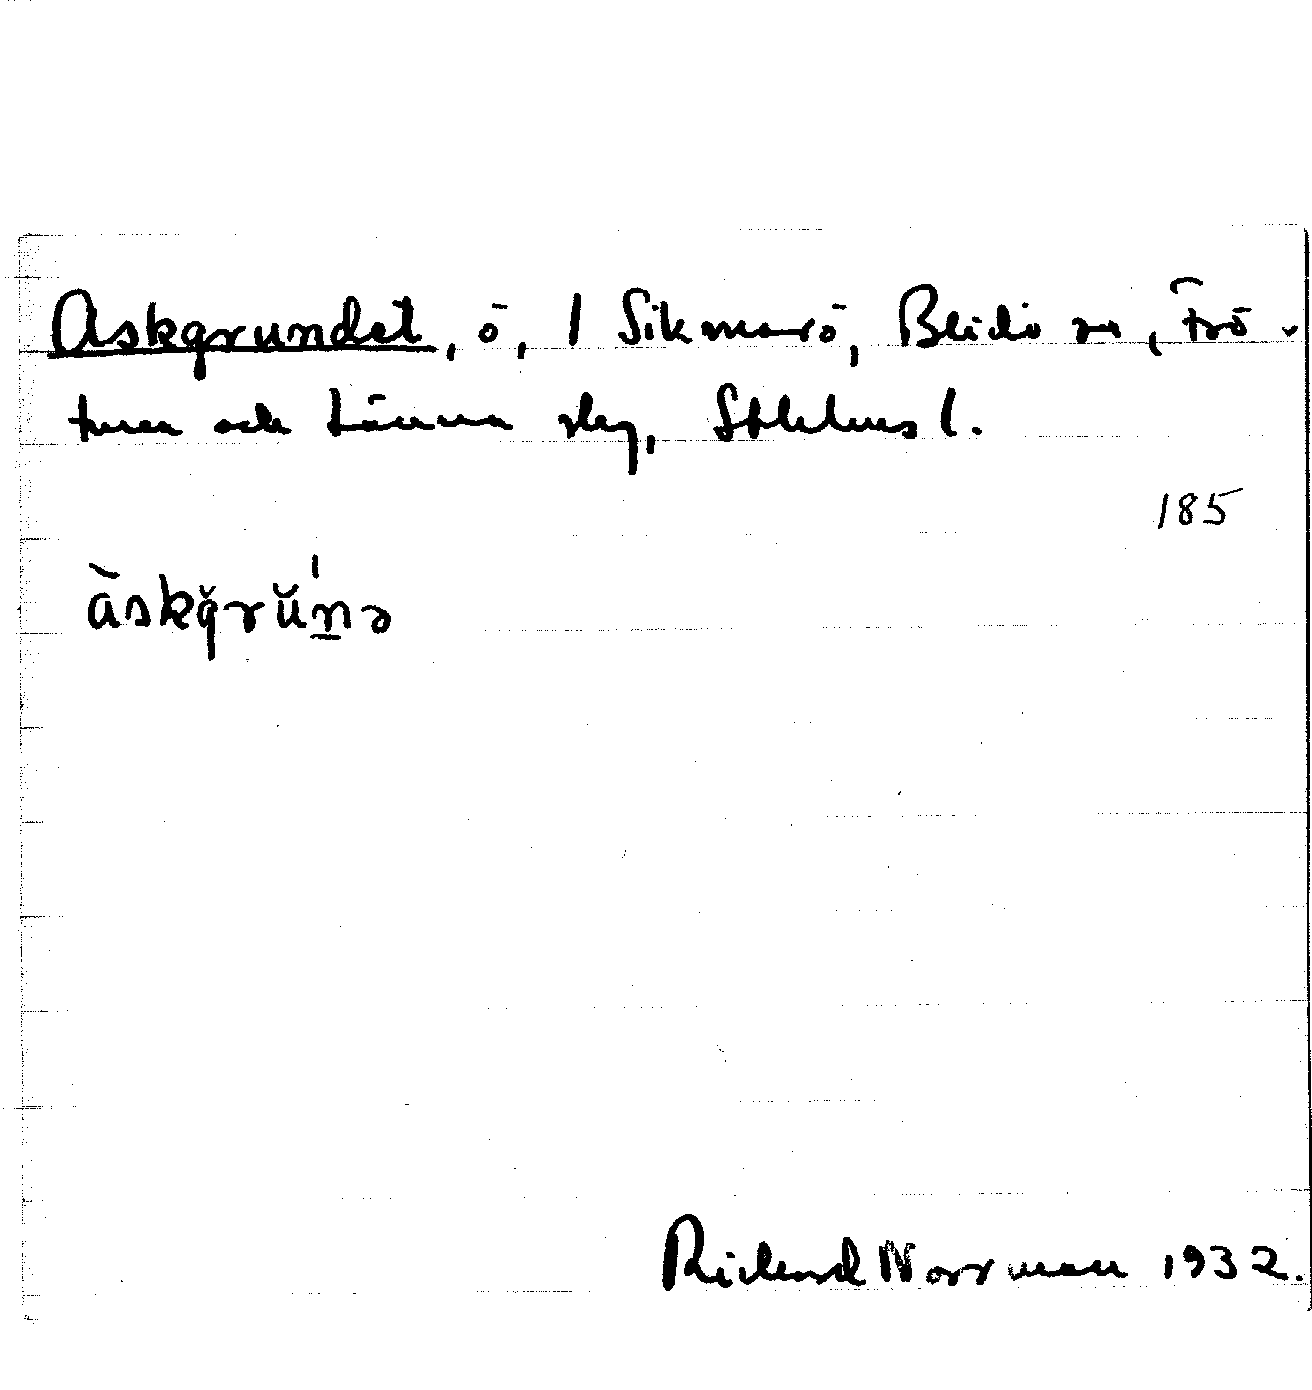 Askgrundet, ö, I Sikmarö, Blidö sn, Frö-
tuna och Länna skg, Sthlms l.
185
àskğrŭ'n̲ə
Richard Norrman 1932.